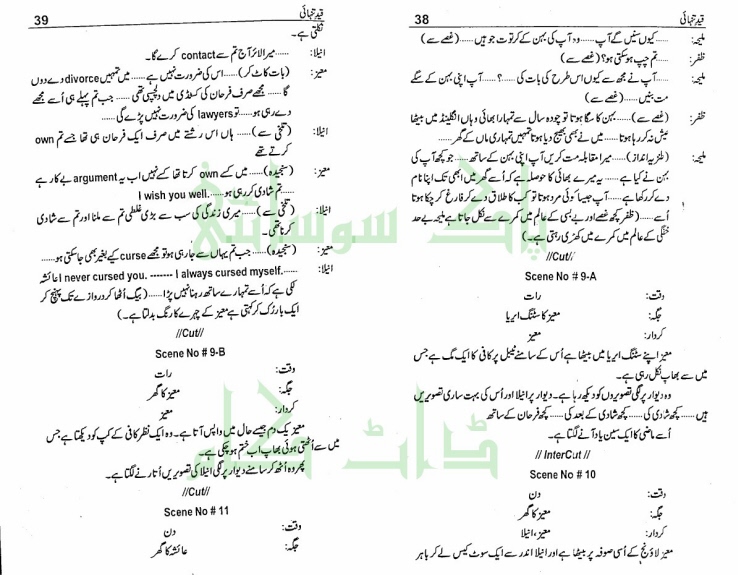 38
قیدِ تنہائی
ملیحہ: ......کیوں سنیں گے آپ......وہ آپ کی بہن کے کرتوت جو ہیں......(غصے سے)
ظفر: تم چپ ہو سکتی ہو؟(غصے سے)
ملیحہ: ......آپ نے مجھ سے کیوں اس طرح کی بات کی......؟......آپ اپنی بہن کے سگے
مت بنیں......(غصے سے)
ظفر: (غصے سے)......بہن کا سگا ہوتا تو چودہ سال سے تمہارا بھائی وہاں انگلینڈ میں بیٹھا
عیش نہ کر رہا ہوتا......میں نے بھی بھیج دیا ہوتا تمہیں تمہاری ماں کے گھر......
ملیحہ: (طنزیہ انداز)......میرا مقابلہ مت کریں آپ اپنی بہن کے ساتھ......جو کچھ آپ کی
بہن نے کیا ہے......یہ میرے بھائی کا حوصلہ ہے کہ اُسے گھر میں ابھی تک اپنا نام
دے کر رکھا ہے......آپ جیسا کوئی مرد ہوتا تو کب کا طلاق دے کر فارغ کر چکا ہوتا
اُسے......(ظفر کچھ غصے اور بے بسی کے عالم میں کمرے سے نکل جاتا ہے ملیحہ بے حد
خفگی کے عالم میں کمرے میں کھڑی رہتی ہے۔)
//Cut//
Scene No # 9-A
وقت: رات
جگہ: معیز کا سٹنگ ایریا
کردار: معیز
معیز اپنے سٹنگ ایریا میں بیٹھا ہے اُس کے سامنے ٹیبل پر کافی کا ایک مگ ہے جس
میں سے بھاپ نکل رہی ہے۔
وہ دیوار پر لگی تصویروں کو دیکھ رہا ہے۔ دیوار پر انیلا اور اُس کی بہت ساری تصویریں
ہیں......کچھ شادی کی......کچھ شادی کے بعد کی......کچھ فرحان کے ساتھ
اُسے ماضی کا ایک سین یاد آنے لگتا ہے۔
// InterCut //
Scene No # 10
وقت: دن
جگہ: معیز کا گھر
کردار: معیز، انیلا
معیز لاؤنج کے اُسی صوفہ پر بیٹھا ہے اور انیلا اندر سے ایک سوٹ کیس لے کر باہر
39
قیدِ تنہائی
نکلتی ہے۔
انیلا: ......میرا لائر آج تم سے contact کرے گا۔
معیز: (بات کاٹ کر)......اس کی ضرورت نہیں ہے......میں تمہیں divorce دے دوں
گا......مجھے صرف فرحان کی کسٹڈی میں دلچسپی تھی......جب تم پہلے ہی اُسے مجھے
دے رہی ہو......تو lawyers کی ضرورت نہیں پڑے گی......
انیلا: (تلخی سے)......ہاں اس رشتے میں صرف ایک فرحان ہی تھا جسے تم own
کرتے تھے
معیز: (سنجیدہ)......میں کسے own کرتا تھا کسے نہیں اب یہ argument بے کار ہے
......تم شادی کر رہی ہو......I wish you well.
انیلا: (تلخی سے)......میری زندگی کی سب سے بڑی غلطی تم سے ملنا اور تم سے شادی
کرنا تھی۔
معیز: (سنجیدہ)......جب تم یہاں سے جا رہی ہو تو مجھے curse کیے بغیر بھی جا سکتی ہو......
انیلا: ......I never cursed you. ------- I always cursed myself. عائشہ
لگی ہے کہ اُسے تمہارے ساتھ رہنا نہیں پڑا......(بیگ اُٹھا کر دروازے تک پہنچ کر
ایک بار رُک کر کہتی ہے معیز کے چہرے کا رنگ بدلتا ہے۔)
//Cut//
Scene No # 9-B
وقت: رات
جگہ: معیز کا گھر
کردار: معیز
معیز یک دم جیسے حال میں واپس آتا ہے۔ وہ ایک نظر کافی کے کپ کو دیکھتا ہے جس
میں سے اُٹھتی ہوئی بھاپ اب ختم ہو چکی ہے۔
پھر وہ اُٹھ کر سامنے دیوار پر لگی انیلا کی تصویریں اُتارنے لگتا ہے۔
//Cut//
Scene No # 11
وقت: دن
جگہ: عائشہ کا گھر
پاک سوسائٹی
ڈاٹ کام